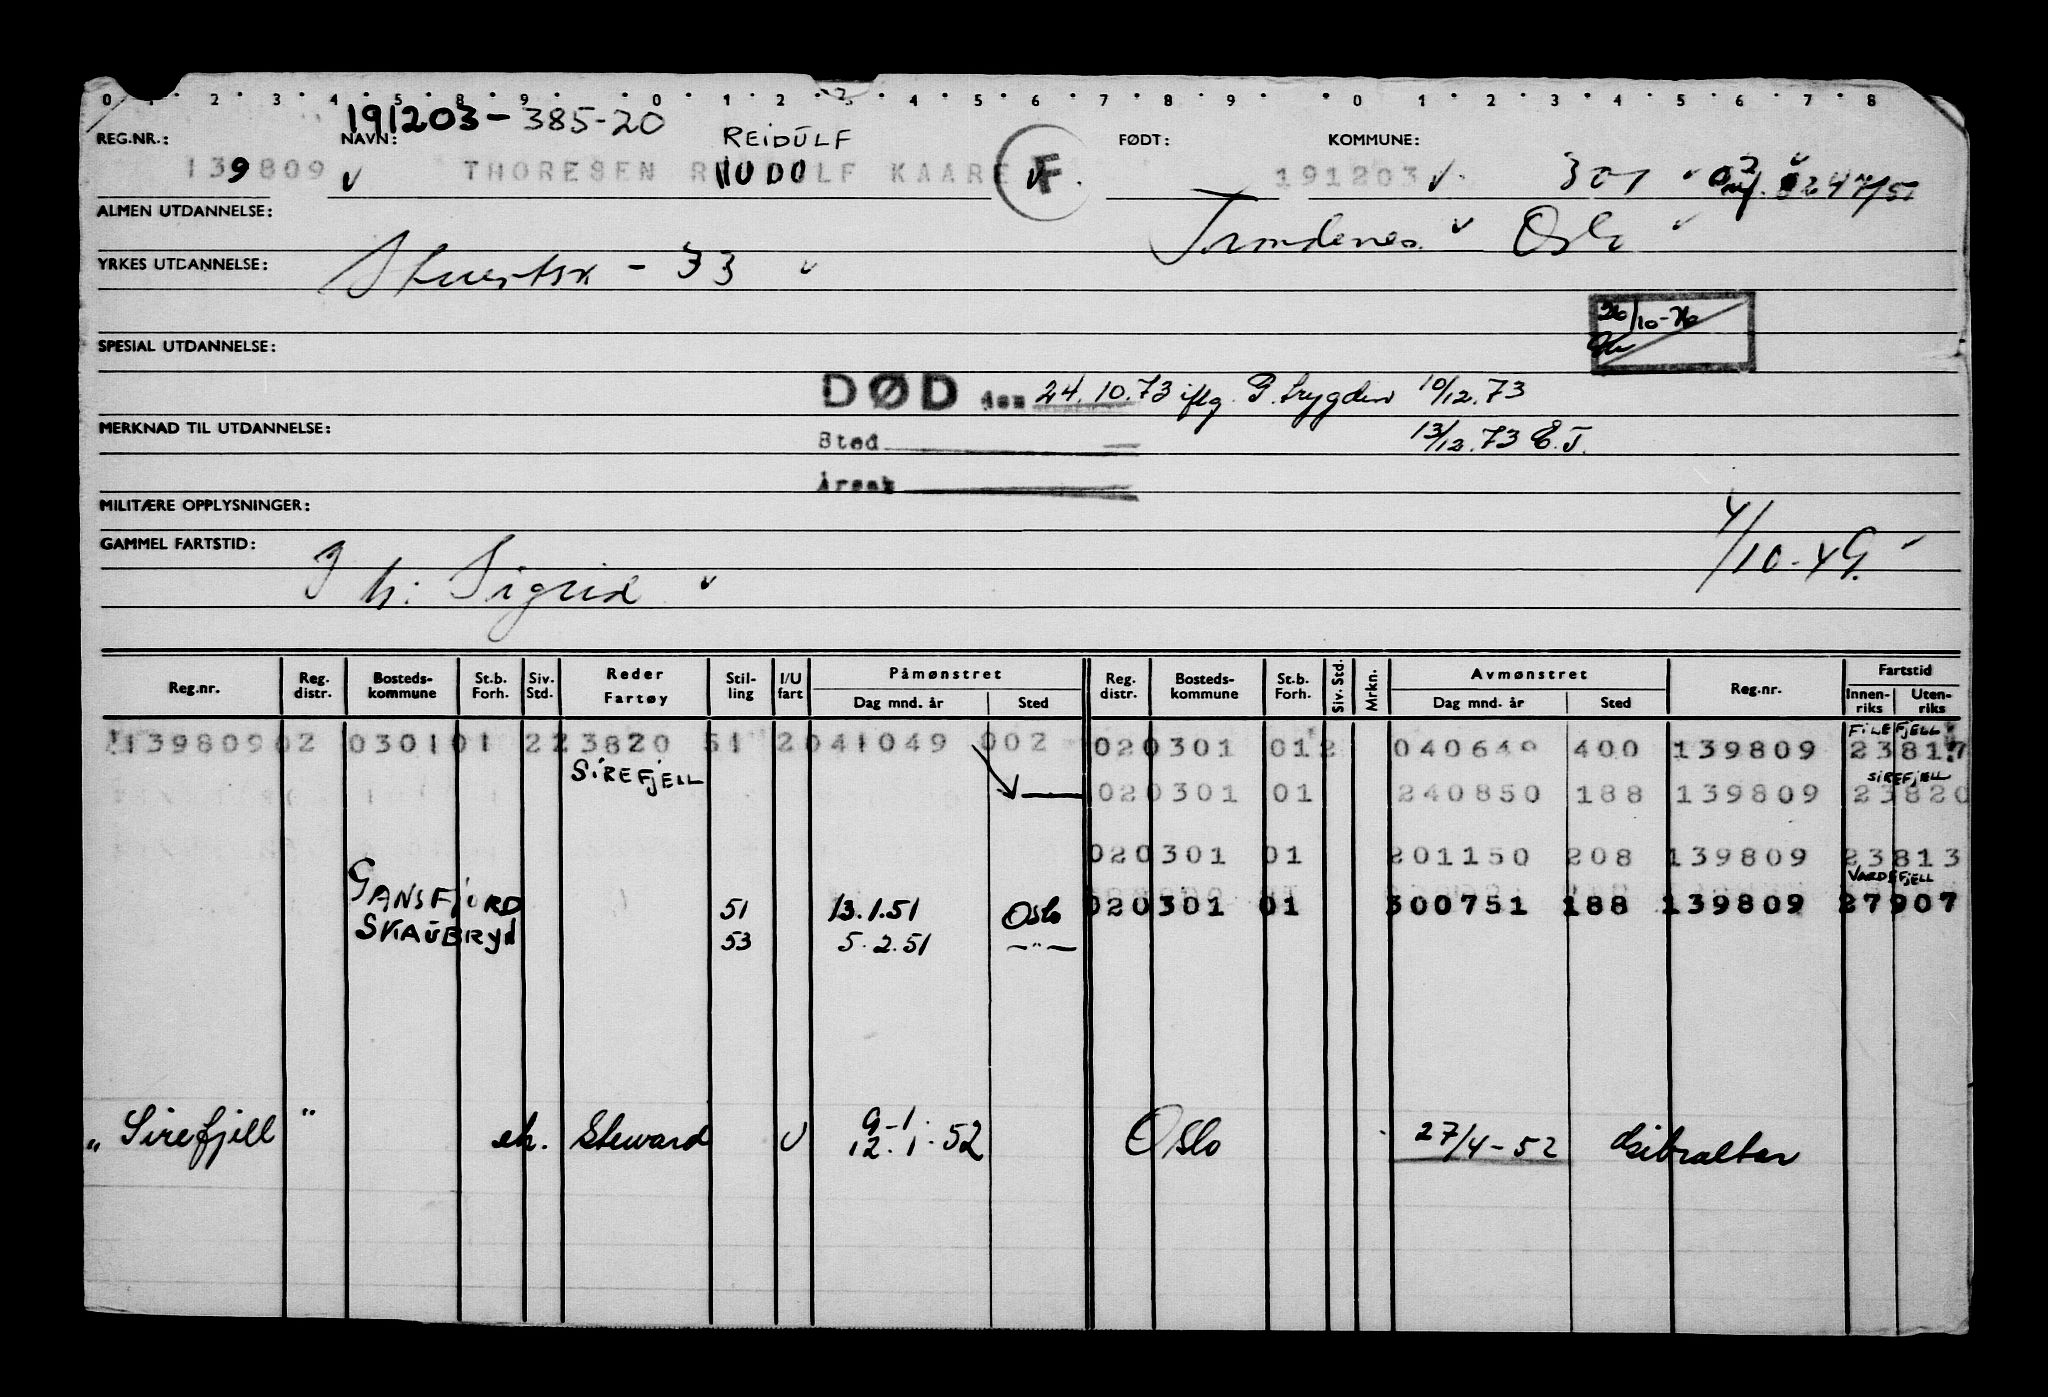 0 1 2 3 4 5 8 9 0 1 2 3 4 5 6 7 8 9 0 1 2 3 4 5 6 7 8
191203-385-20
REG.NR.: NAVN: REIDULF FØDT: KOMMUNE:
139809 THORESEN RUDOLF KAARE F 191203 301
ALMEN UTDANNELSE: Trondenes Oslo
YRKES UTDANNELSE: Stuertsk - 33
26/10-76
SPESIAL UTDANNELSE:
DØD den 24.10.73 iflg. G. trygden 10/12.73
MERKNAD TIL UTDANNELSE: Sted 13/12.73 E.T.
Årsak
MILITÆRE OPPLYSNINGER:
GAMMEL FARTSTID: 4/10-49
J h: Sigrid
Reg.nr. Reg. distr. Bosteds-kommune St.b. Forh. Siv. Std. Reder Fartøy Stil-ling I/U fart Påmønstret Dag mnd. år Sted Reg. distr. Bosteds-kommune St.b. Forh. Siv. Std. Mrkn. Avmønstret Dag mnd. år Sted Reg.nr. Fartstid Innen-riks Uten-riks
FILEFJELL
139809 02 0301 01 2 23820 51 2 041049 002 02 0301 01 2 040649 400 139809 23817
SIREFJELL SIREFJELL
02 0301 01 240850 188 139809 23820
02 0301 01 201150 208 139809 23813
VARDEFJELL
GANSFJORD 51 13.1.51 Oslo 02 0301 01 300751 188 139809 27907
SKAUBRYN 53 5.2.51 —"—
"Sirefjell" eh. Steward U 9-1. 12.1.52 Oslo 27/4-52 Gibraltar